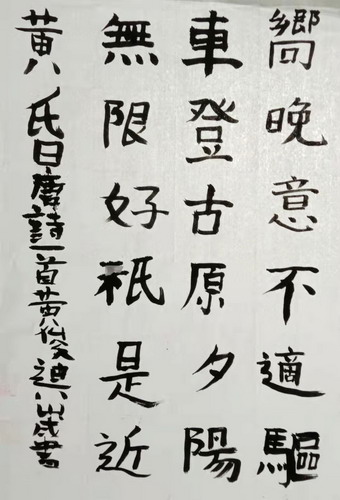 嚮晚意不適驅
車登古原夕陽
無限好衹是近
黃昏唐詩一首黃俊迪八歲書